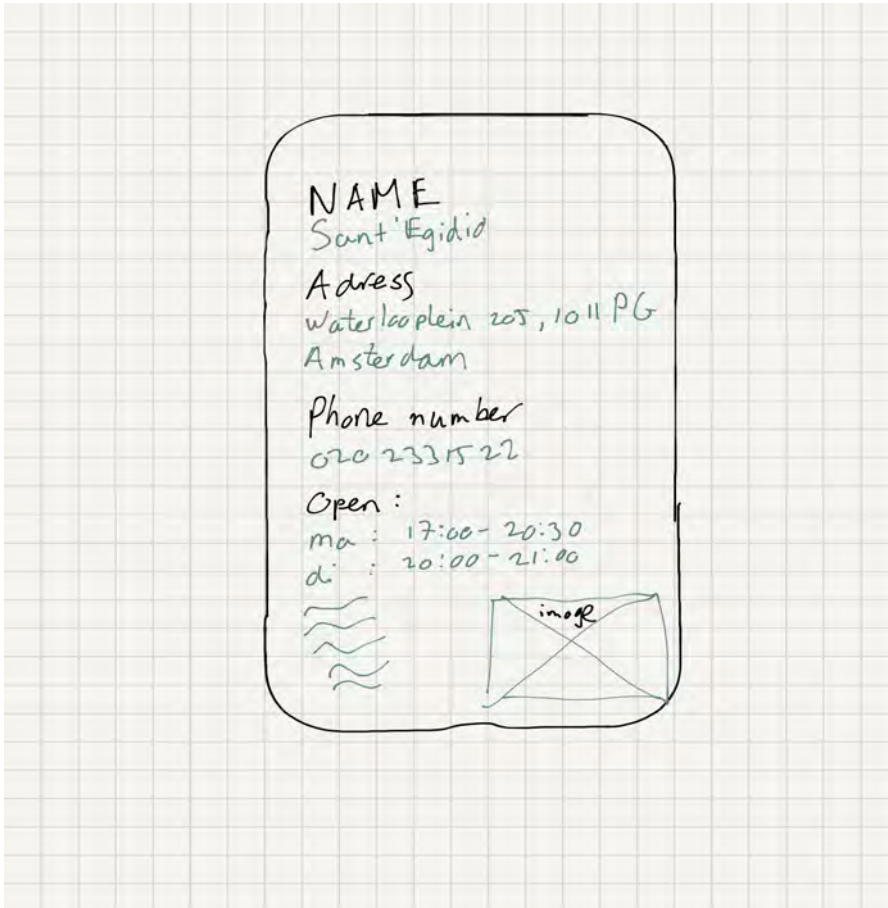 NAME
Sant'Egidio
Adress
Waterlooplein 205, 1011 PG
Amsterdam
Phone number
020 2331522
Open :
ma : 17:00 - 20:30
di : 20:00 - 21:00
image